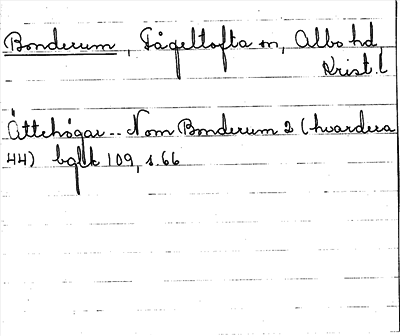 Bonderum, Fågeltofta sn, Albo hd,
Krist.l
Ättehögar -- Nom Bonderum 2 (hvardera
44) bglk 109, s. 66